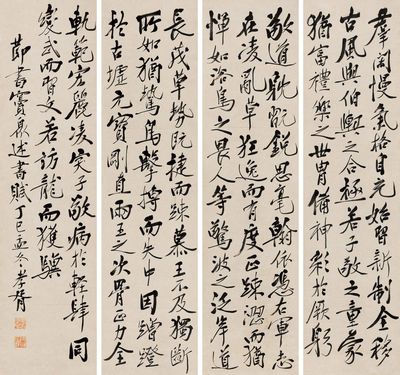 羣闊慢氣格自充始習新制全移
古風與伯輿之合極若子敬之童蒙
猶富禮樂之世冑備神彩於厥躬
敬道耽翫銳思毫翰依憑右軍志
在凌亂草狂逸而有度正踈澀而猶
憚如浴鳥之畏人等驚波之泛岸道
長茂草勢既捷而踈慕王不及獨斷
所如猶鷙鳥擊搏而失中因蹭蹬
於古墟元寶剛直兩王之次骨正力全
軌範宏麗凌突子敬病於輕肆同
變武而習文若訪龍而獲驥
節書竇臮述書賦丁巳孟冬孝胥